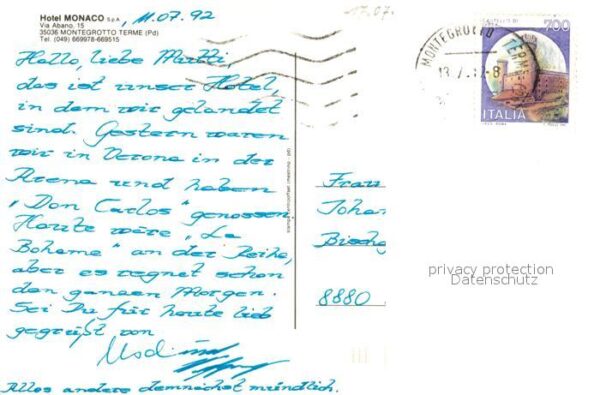 Hotel MONACO S.p.A.
Via Abano, 15
35036 MONTEGROTTO TERME (Pd)
Tel. (049) 669978-669515
11.07.92
Hallo, liebe Mutti,
das ist unser Hotel,
in dem wir gelandet
sind. Gestern waren
wir in Verona in der
Arena und haben
„Don Carlos" genossen.
Heute wäre „La
Boheme" an der Reihe,
aber es regnet schon
den ganzen Morgen.
Sei Du für heute lieb
gegrüßt von
Alles andere demnächst mündlich.
MONTEGROTTO TERME
13.7.92-8
700
ITALIA
Frau
Joha
Bischo
8880
privacy protection
Datenschutz